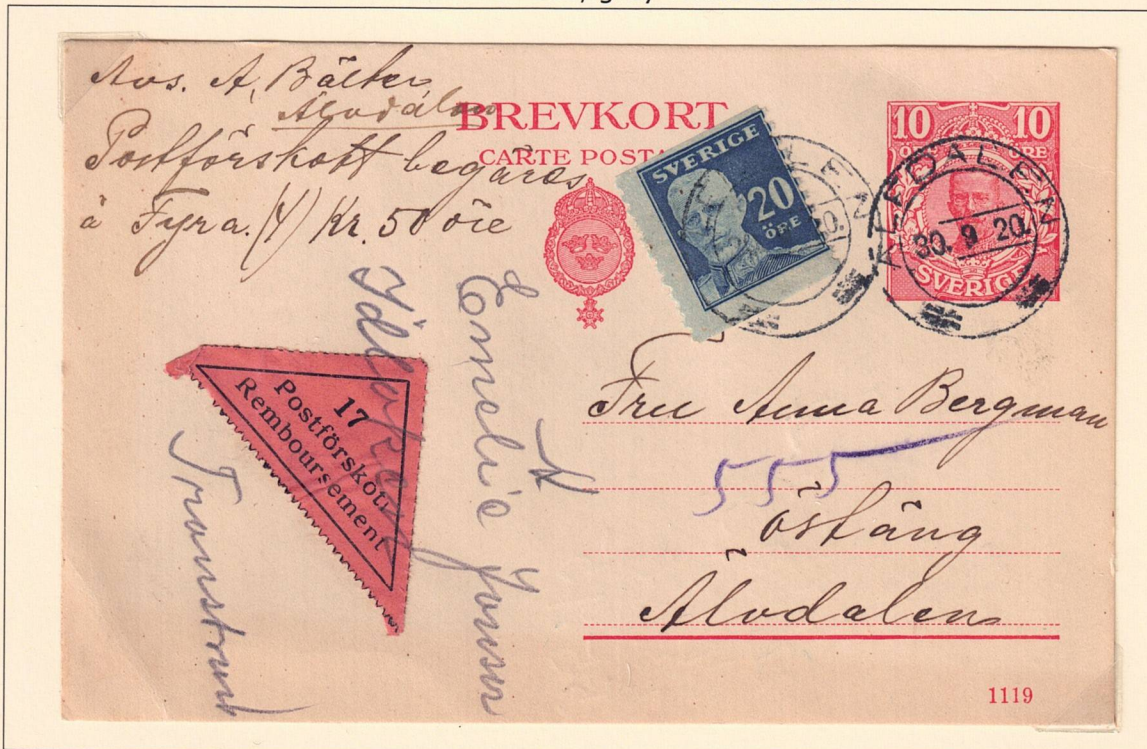 Avs. A, Bälter
Älvdalen
Postförskott begäres
à Fyra. (4) Kr. 50 öre
BREVKORT
CARTE POSTA
SVERIGE
20
ÖRE
10 10
ÖRE ÖRE
SVERIGE
ÄLFDALEN
30. 9 20.
17
Postförskott
Remboursement
Emelie Jonson
Transtrand
Fru Anna Bergman
555
östäng
Älvdalen
1119